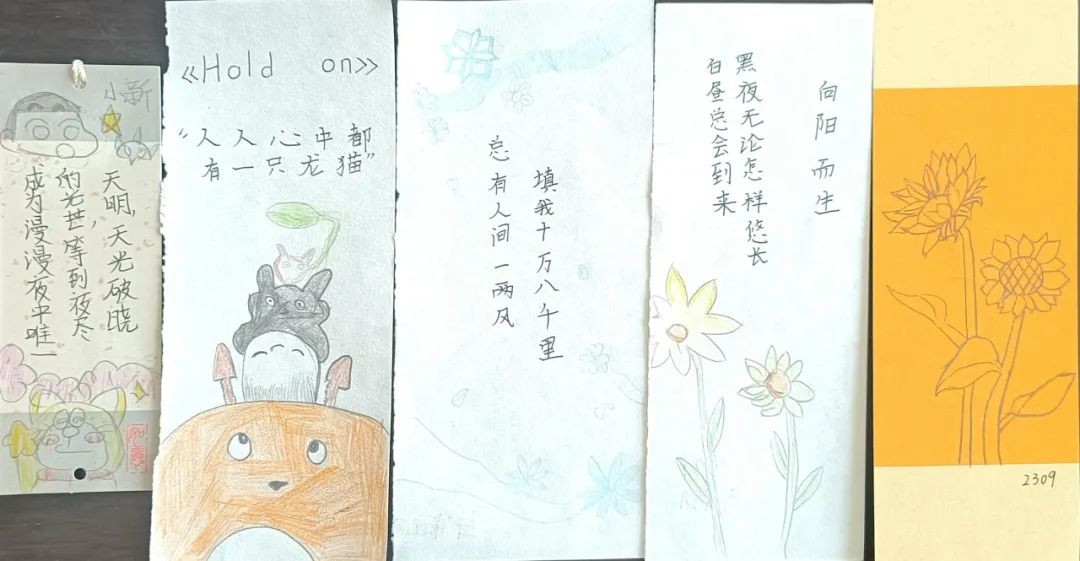 小新
成为漫漫夜中唯一
的光芒,等到夜尽
天明,天光破晓
《Hold on》
“人人心中都
有一只龙猫”
总有人间一两风
填我十万八千里
向阳而生
黑夜无论怎样悠长
白昼总会到来
2309